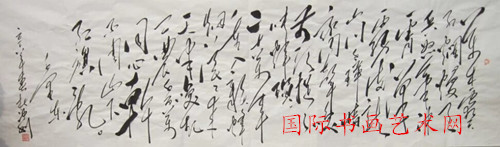 万木霜天
红烂漫天
兵怒气冲
霄汉雾满
龙冈千嶂
暗齐声唤
前头捉了张
辉瓒
二十万军
重入赣风
烟滚滚来
天半唤起
工农千百万
同心干
不周山下
红旗乱
毛泽东
国际书画艺术网